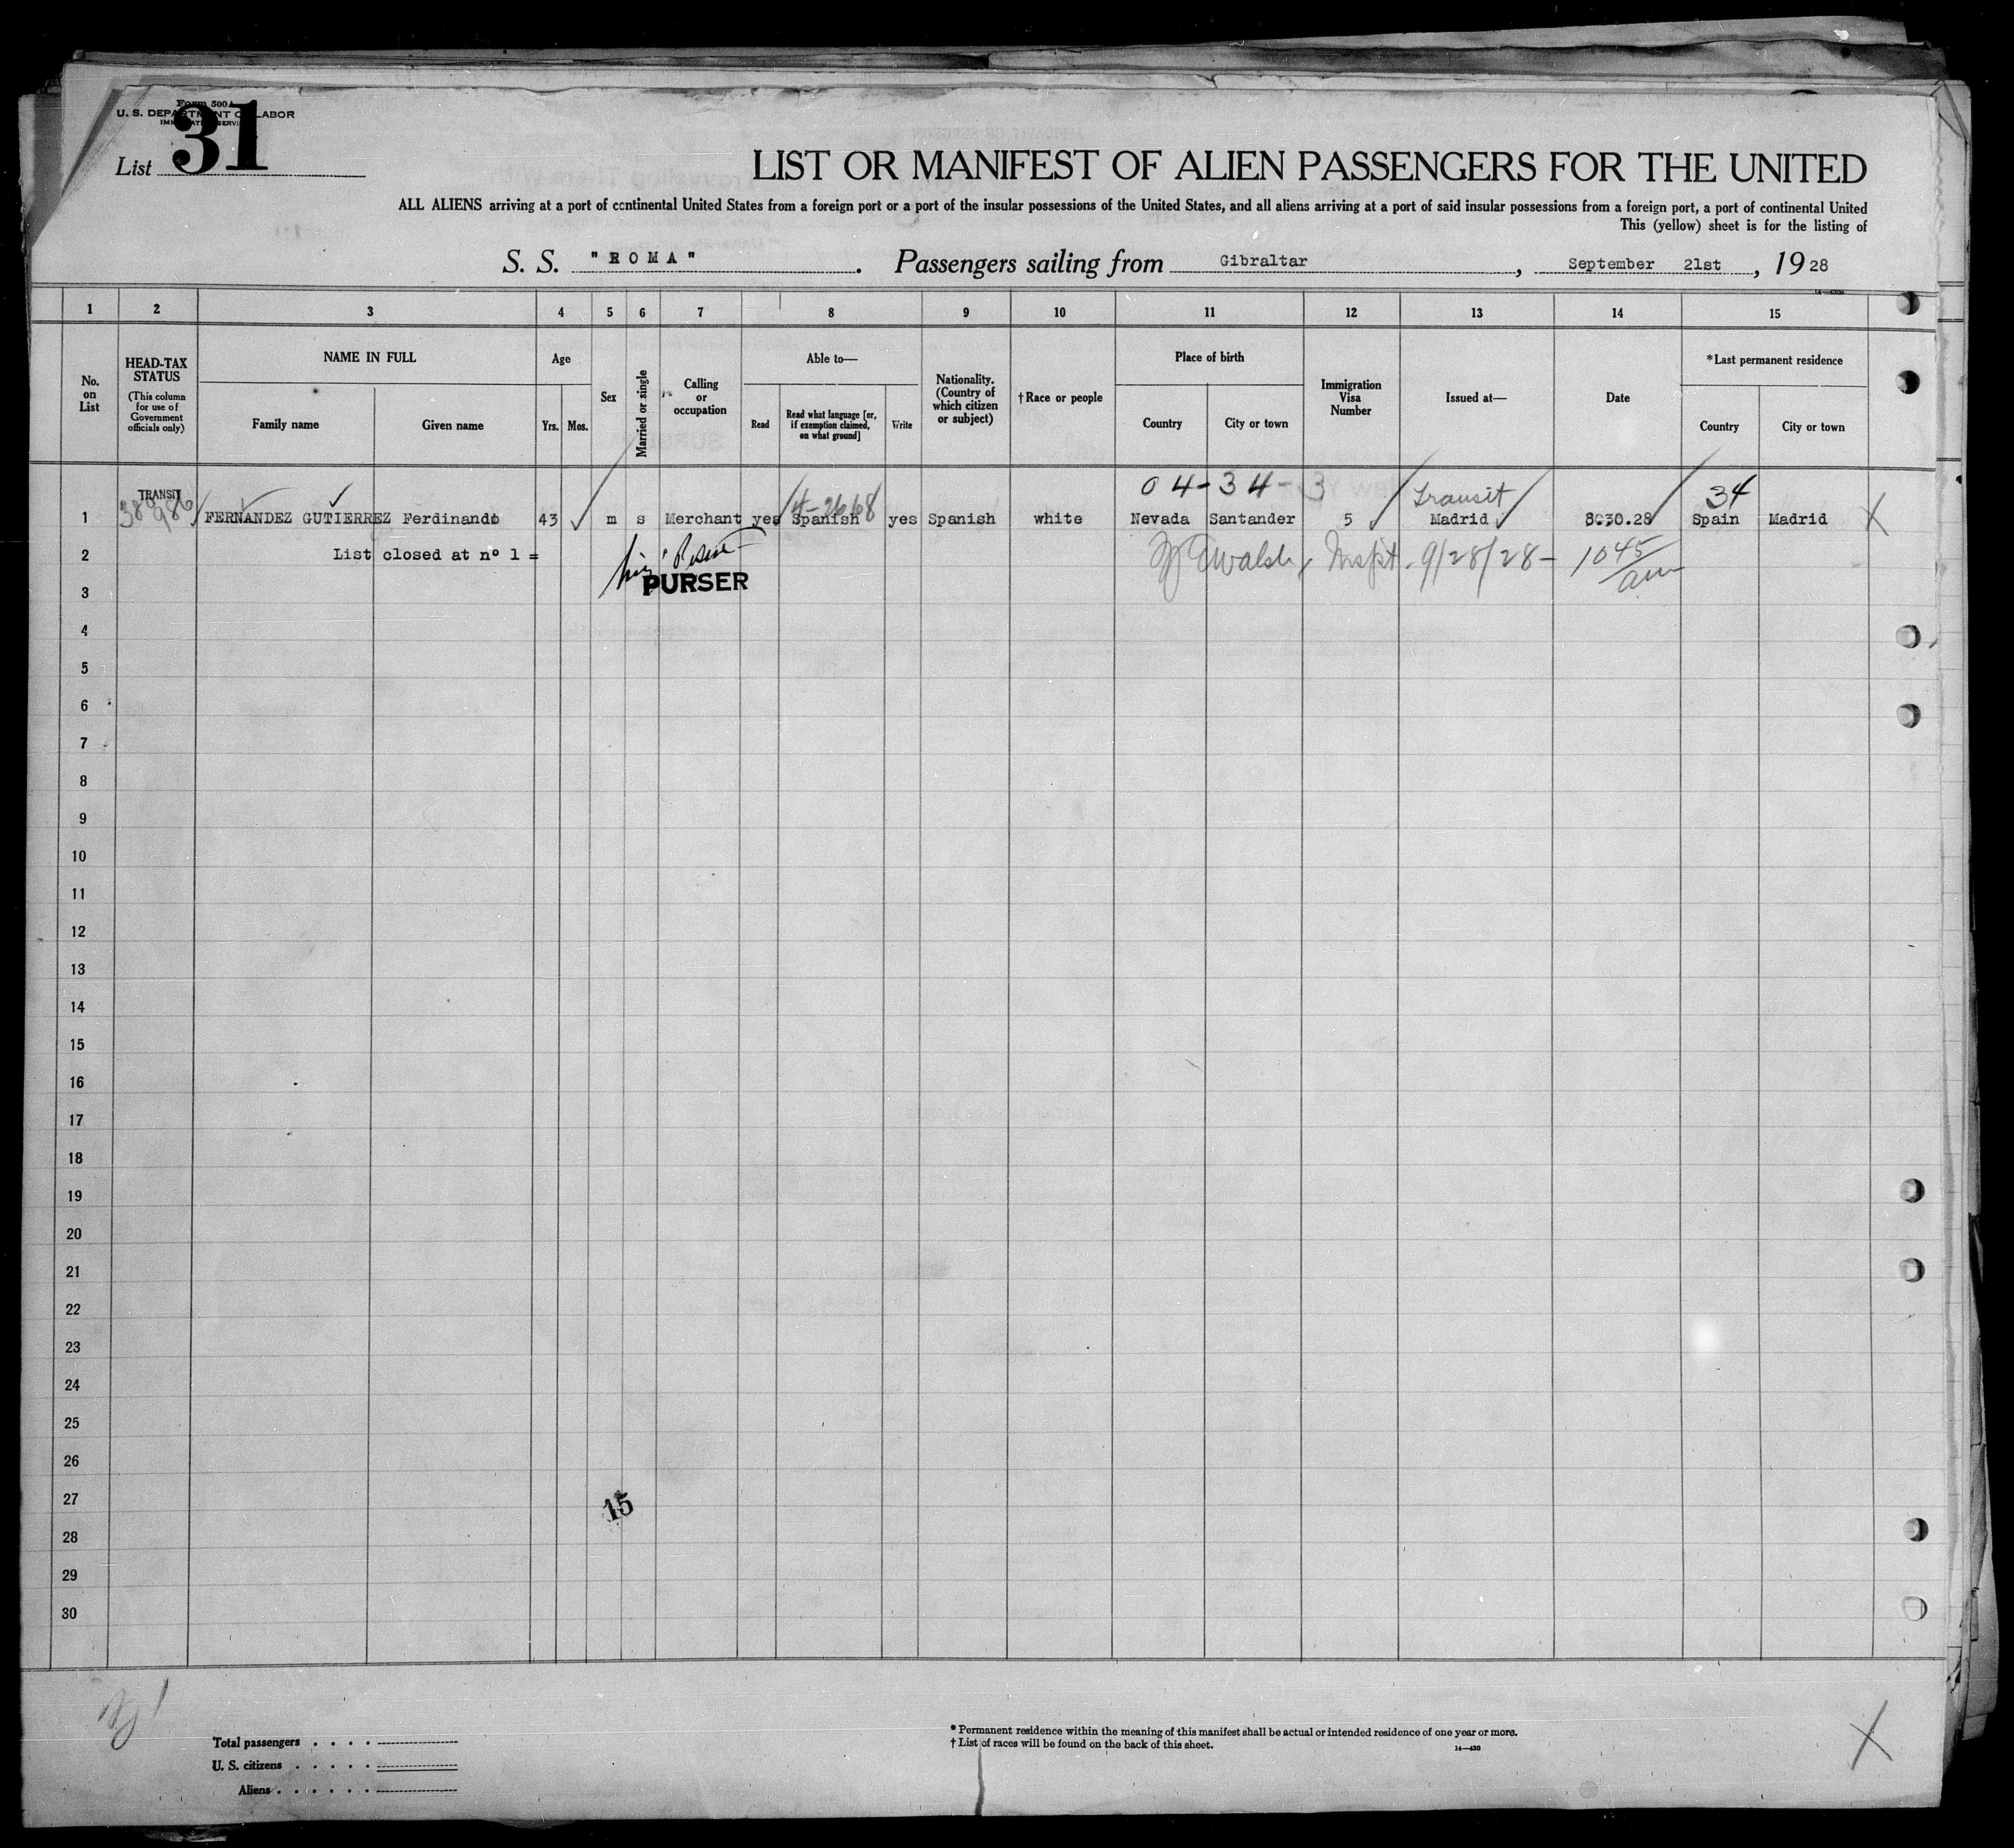 Form 500 A
U. S. DEPARTMENT OF LABOR
IMMIGRATION SERVICE
List 31
LIST OR MANIFEST OF ALIEN PASSENGERS FOR THE UNITED
ALL ALIENS arriving at a port of continental United States from a foreign port or a port of the insular possessions of the United States, and all aliens arriving at a port of said insular possessions from a foreign port, a port of continental United
This (yellow) sheet is for the listing of
S. S. "ROMA". Passengers sailing from Gibraltar, September 21st, 1928
1 2 3 4 5 6 7 8 9 10 11 12 13 14 15
No. on List
HEAD-TAX STATUS
(This column for use of Government officials only)
NAME IN FULL
Family name
Given name
Age
Yrs.
Mos.
Sex
Married or single
Calling or occupation
Able to—
Read
Read what language [or, if exemption claimed, on what ground]
Write
Nationality. (Country of which citizen or subject)
†Race or people
Place of birth
Country
City or town
Immigration Visa Number
Issued at—
Date
*Last permanent residence
Country
City or town
04-34-3 transit 34
TRANSIT 4-2668
1 FERNANDEZ GUTIERREZ Ferdinando 43 m s Merchant yes Spanish yes Spanish white Nevada Santander 5 Madrid 8030.28 Spain Madrid X
2 List closed at n° 1 = Walsh, Inspt. 9/28/28 - 10 45/am
PURSER
3
4
5
6
7
8
9
10
11
12
13
14
15
16
17
18
19
20
21
22
23
24
25
26
27
15
28
29
30
Total passengers . . . .
U. S. citizens . . . . .
Aliens . . . . . .
* Permanent residence within the meaning of this manifest shall be actual or intended residence of one year or more.
† List of races will be found on the back of this sheet.
14—430
X